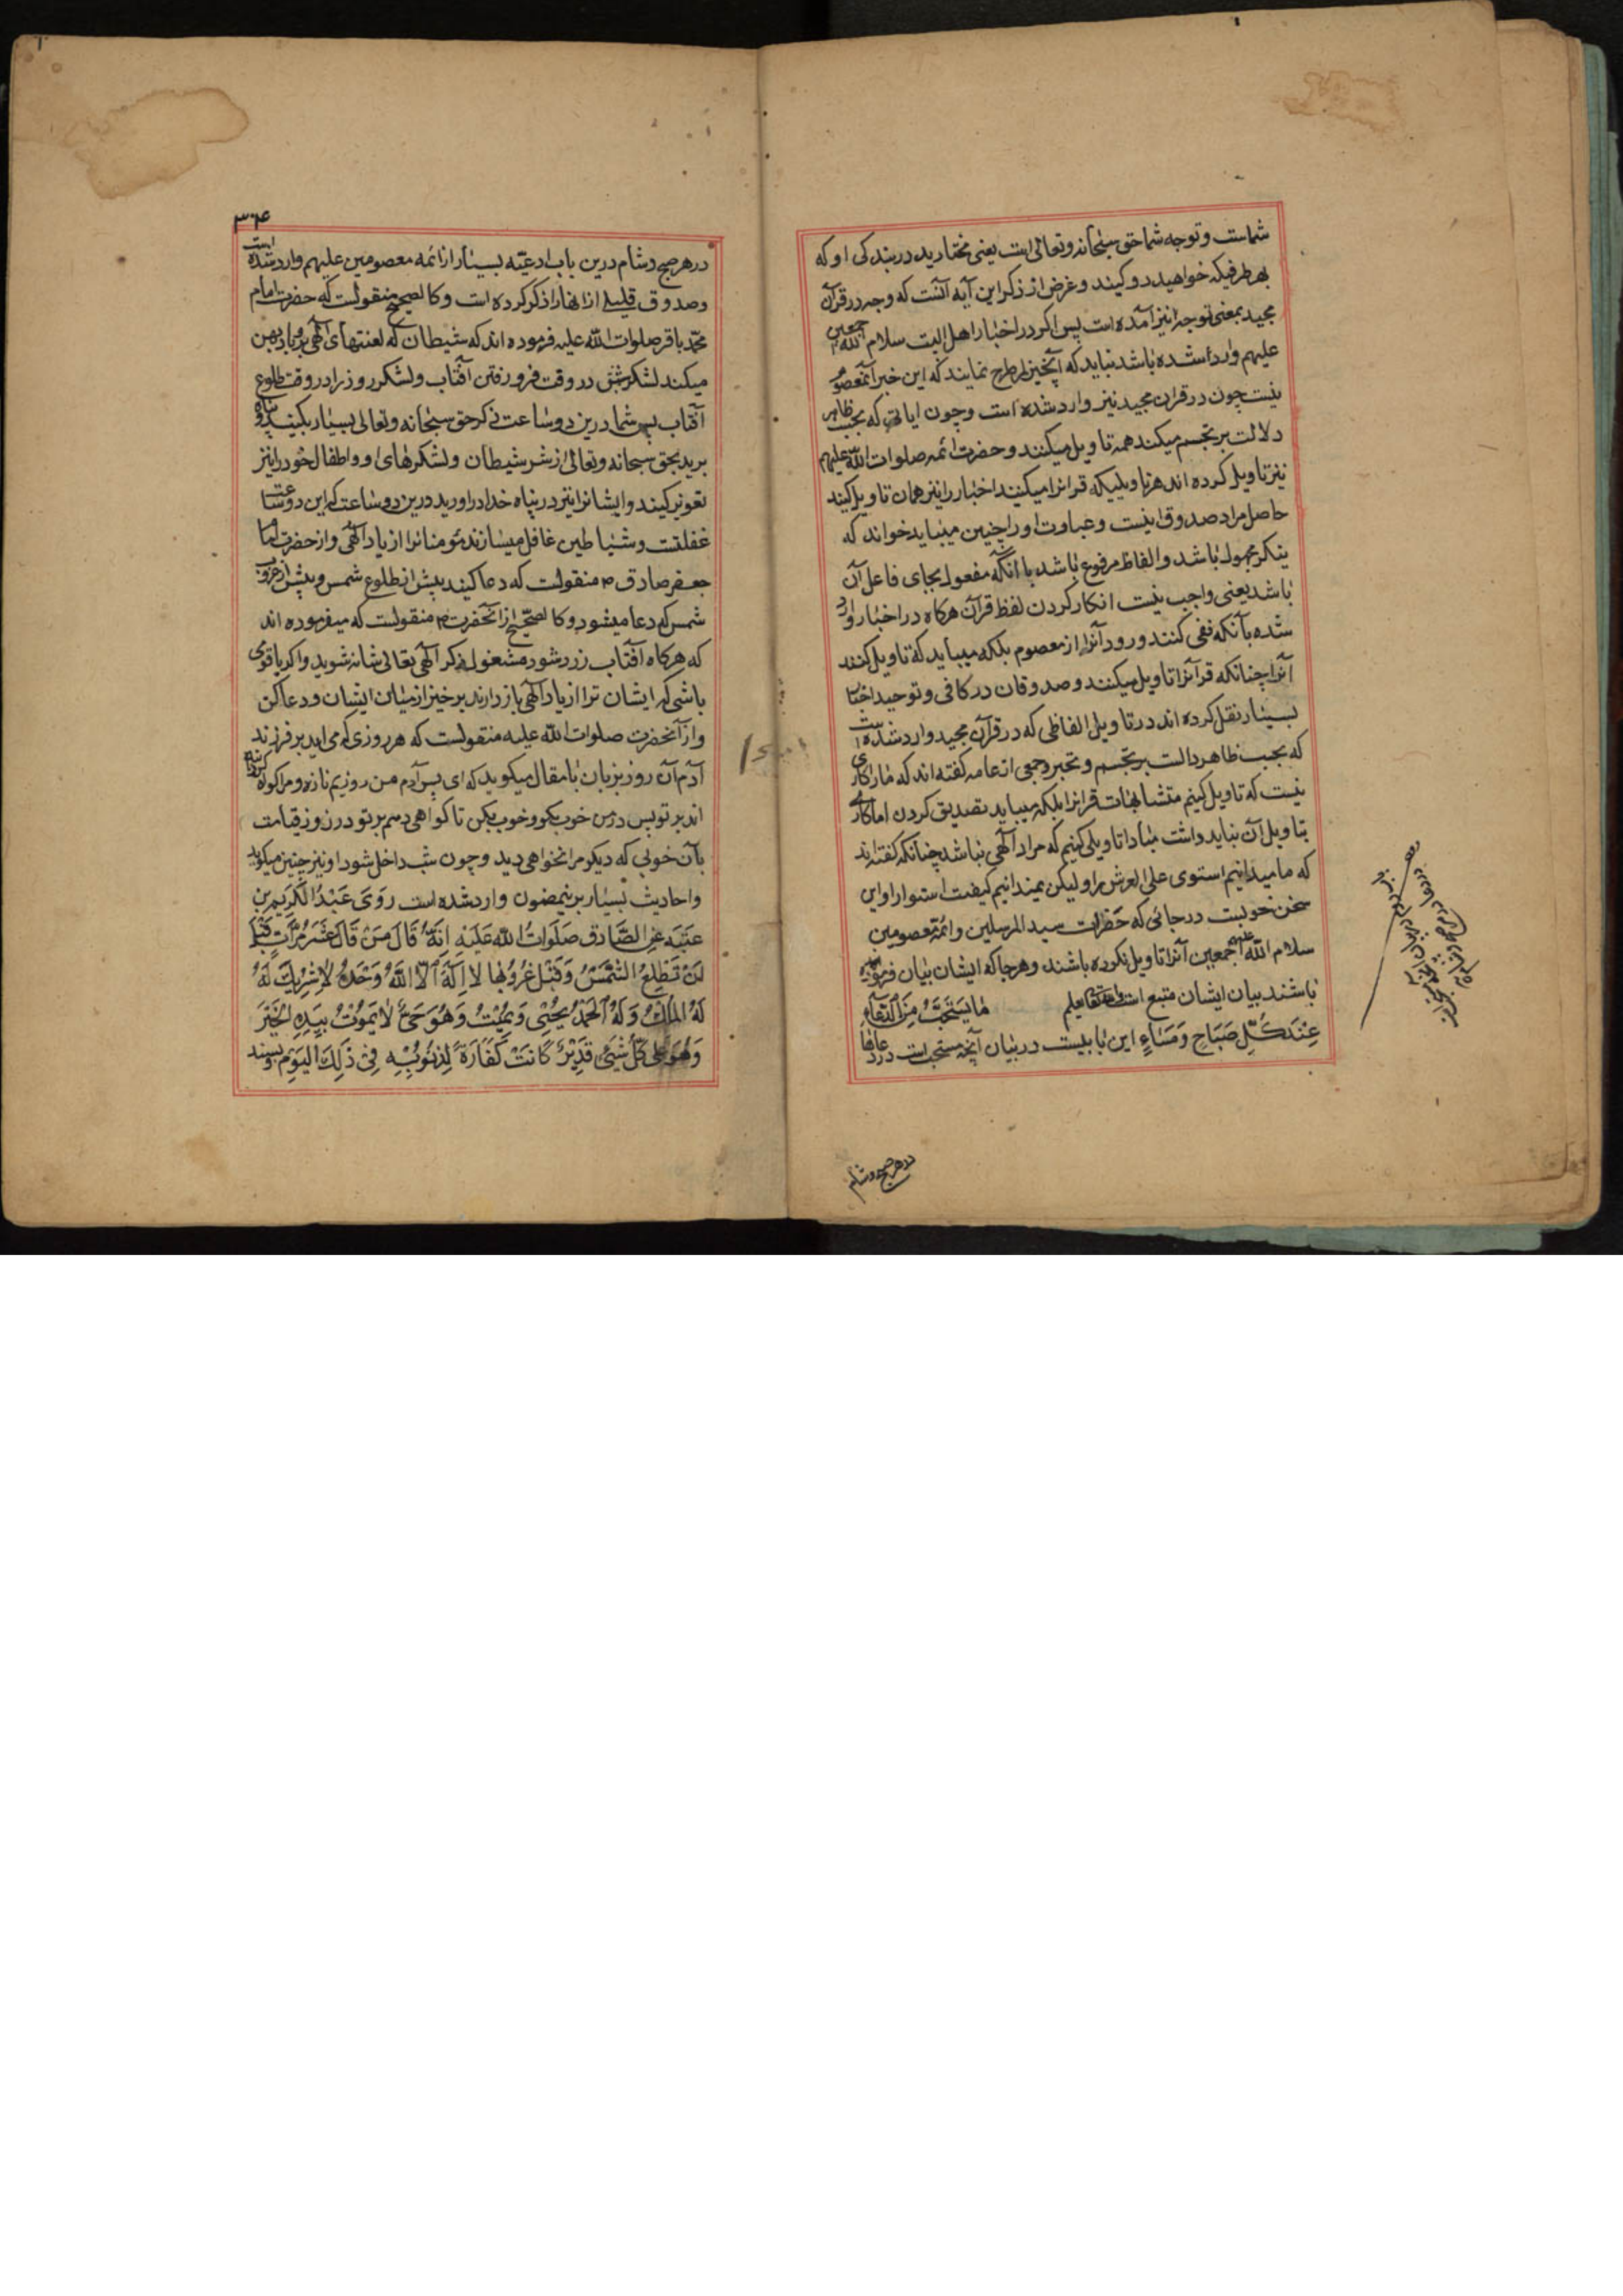 شماست و توجه شما حق سبحانه و تعالی است یعنی مختارید در بندکی او که
بهر طرفیکه خواهید رو کیند و غرض از ذکر این آیه آنست که وجه در قرآن
مجید بمعنی توجه نیز آمده است پس اکر در اخبار اهل البیت سلام الله
علیهم اجمعین وارد شده باشد نباید که آنخبر را طرح نمایند که این خبر از معصوم
نیست چون در قران مجید نیز وارد شده است و چون ایاتی که بحسب ظاهر
دلالت بر تجسم میکند همه تاویل میکنند و حضرت ائمه صلوات الله علیهم
نیز تاویل کرده اند هر تاویلیکه قرانرا میکنند اخبار را نیز همان تاویل کیند
حاصل مراد صدوق اینست و عبارت او را چنین میباید خواند که
ینکر مجهول باشد و الفاظ مرفوع باشد با آنکه مفعول بجای فاعل آن
باشد یعنی واجب نیست انکار کردن لفظ قرآن هرکاه در اخبار وارد
شده بآنکه نفی کنند ورود آنرا از معصوم بلکه میباید که تاویل کنند
آنرا چنانکه قرآنرا تاویل میکنند و صدوقان در کافی و توحید اخبار
بسیار نقل کرده اند در تاویل الفاظی که در قرآن مجید وارد شده است
که بحسب ظاهر دالست بر تجسم و تحیز و جمعی از عامه کفته اند که ما را کاری
نیست که تاویل کنیم متشابهات قرانرا بلکه میباید تصدیق کردن اما کاری
بتاویل آن نباید داشت مبادا تاویلی کنیم که مراد آلهی نباشد چنانکه کفته اند
که ما میدانیم استوی علی العرش را و لیکن نمیدانیم کیفیت استوا را و این
سخن خوبست در جائی که حضرات سید المرسلین و ائمه معصومین
سلام الله علیهم اجمعین آنرا تاویل نکرده باشند و هرجا که ایشان بیان فرموده
باشند بیان ایشان متبع است والله تعالی یعلم ما یستحب من الدعاء
عند کل صباح و مساء این بابیست در بیان آنچه مستحب است از دعاها
در هر صبح و شام
۳۰۴
در هر صبح و شام درین باب ادعیه بسیار از ائمه معصومین علیهم وارد شده است
و صدوق قلیلی از انها را ذکر کرده است و کالصحیح منقولست که حضرت امام
محمد باقر صلوات الله علیه فرموده اند که شیطان که لعنتهای آلهی بر و باد پهن
میکند لشکر شب در وقت فرو رفتن آفتاب و لشکر روز را در وقت طلوع
آفتاب پس شما درین دو ساعت ذکر حق سبحانه و تعالی بسیار بکیند و پناه
برید بحق سبحانه و تعالی از شر شیطان و لشکرهای او و اطفال خود را نیز
تعویذ کیند و ایشانرا نیز در پناه خدا در اورید درین دو ساعت که این دو ساعت
غفلتست و شیاطین غافل میسازند مؤمنانرا از یاد آلهی و از حضرت امام
جعفر صادق ۴ منقولست که دعا کیند پیش از طلوع شمس و پیش از غروب
شمس که دعا میشود و کالصحیح از آنحضرت ۴ منقولست که میفرموده اند
که هرکاه آفتاب زرد شود مشغول ذکر آلهی تعالی شانه شوید و اکر با قومی
باشی که ایشان ترا از یاد آلهی باز دارند برخیز از میان ایشان و دعا کن
و از آنحضرت صلوات الله علیه منقولست که هر روزی که می اید بر فرزند
آدم آن روز بزبان با مقال میکوید که ای پسر آدم من روزیم تازه و مرا کواه کرده
اند بر تو پس در من خوب بکو و خوب بکن تا کواهی دهم بر تو در روز قیامت
بآن خوبی که دیکر مرا نخواهی دید و چون شب داخل شود او نیز چنین میکوید
و احادیث بسیار برینمضمون وارد شده است رَوَی عَبْدُ الکَرِیمِ بن
عتبه عن الصَّادق صَلَواتُ الله عَلَیْهِ اِنَّهُ قَالَ مَنْ قَالَ عَشَرَ مَرّاتٍ قَبْلَ
اَنْ تَطْلُعَ الشَّمْسُ وَقَبْلَ غُرُوبِهَا لا اِلهَ اِلّا اللهُ وَحْدَهُ لاشَرِیكَ لَهُ
لَهُ المُلْكُ وَلَهُ الحَمْدُ یُحْیِی وَیُمِیْتُ وَهُوَ حَیٌّ لایَمُوتُ بِیَدِهِ الخَیْرُ
وَهُوَ عَلی کُلِّ شَیْءٍ قَدِیْرٌ کَانَتْ کَفَارَةً لِذُنُوبِهِ فِی ذَلِكَ الیَوْمِ بسند